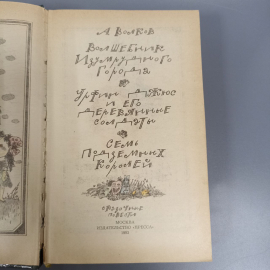 А Волков
Волшебник
Изумрудного
города
Урфин Джюс
и его
деревянные
солдаты
Семь
подземных
королей
сказочные
повести
МОСКВА
ИЗДАТЕЛЬСТВО